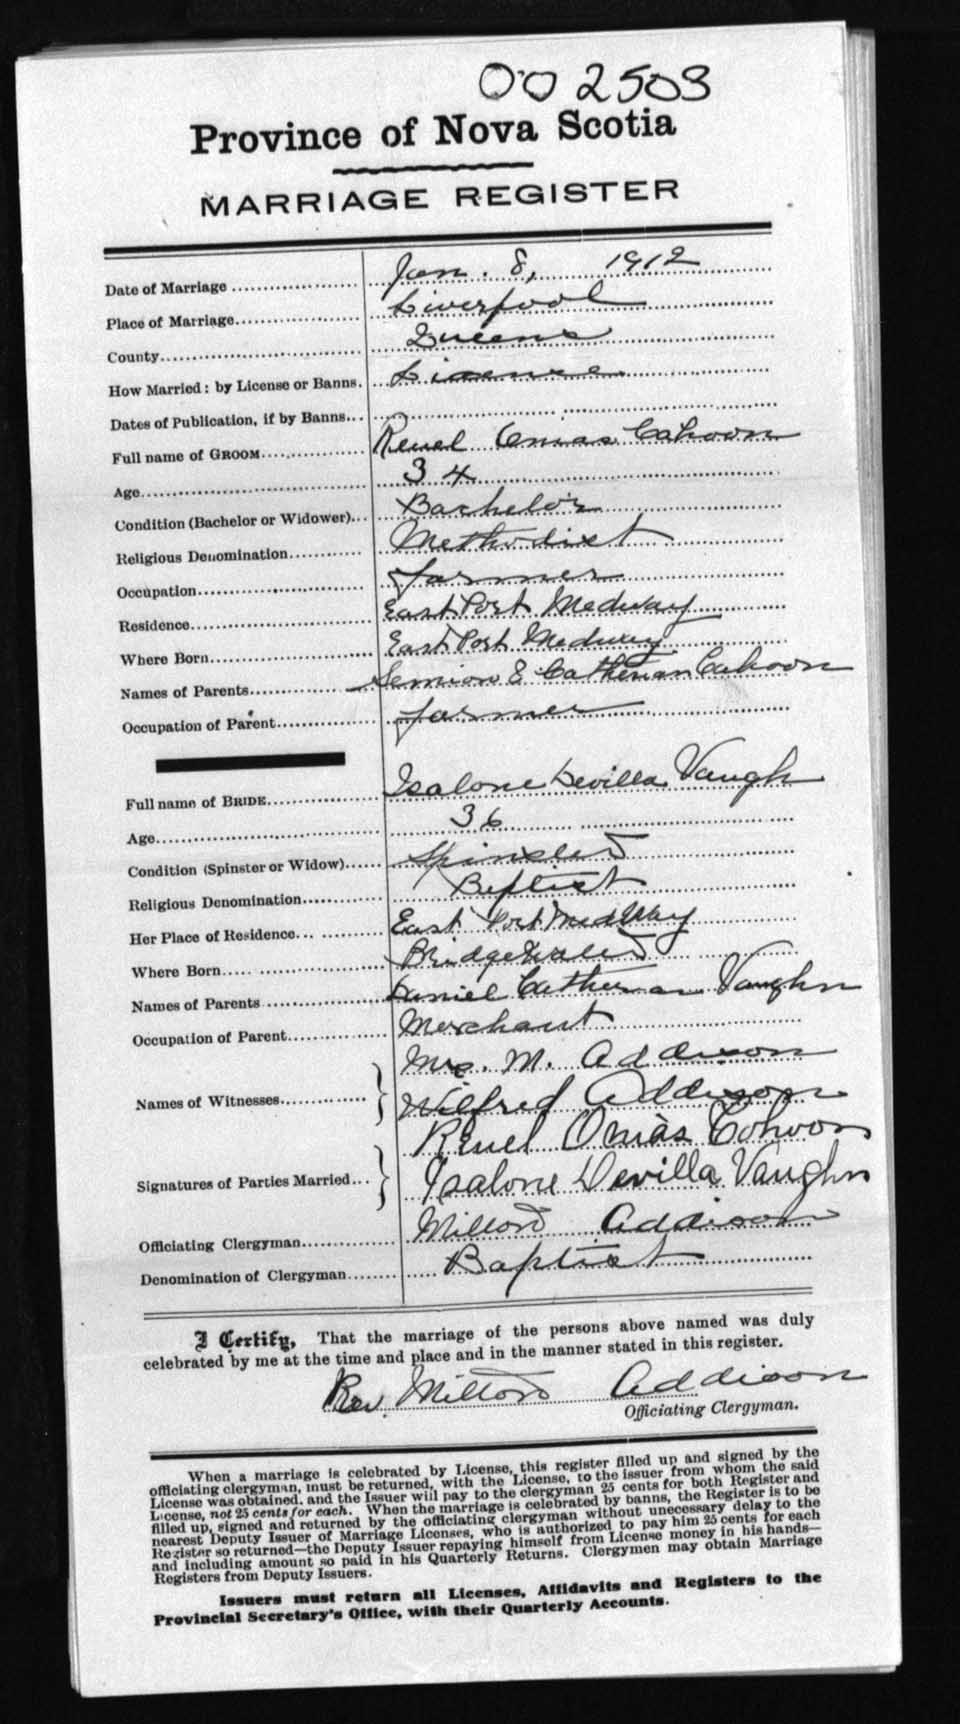 002503
Province of Nova Scotia
MARRIAGE REGISTER
Date of Marriage Jan. 8, 1912
Place of Marriage Liverpool
County Queens
How Married: by License or Banns. License
Dates of Publication, if by Banns
Full name of GROOM Reuel Omas Cahoon
Age 34
Condition (Bachelor or Widower) Bachelor
Religious Denomination Methodist
Occupation farmer
Residence East Port Medway
Where Born East Port Medway
Names of Parents Simion & Catherian Cahoon
Occupation of Parent farmer
Full name of BRIDE Isalone Devilla Vaugh
Age 36
Condition (Spinster or Widow) Spinster
Religious Denomination Baptist
Her Place of Residence East Port Medway
Where Born Bridgewater
Names of Parents Daniel Catherian Vaughn
Occupation of Parent Merchant
Mrs. M. Addison
Names of Witnesses
Wilfred Addison
Reuel Omas Cohoon
Signatures of Parties Married
Isalone Devilla Vaughn
Officiating Clergyman Milton Addison
Denomination of Clergyman Baptist
I Certify, That the marriage of the persons above named was duly
celebrated by me at the time and place and in the manner stated in this register.
Rev. Milton Addison
Officiating Clergyman.
When a marriage is celebrated by License, this register filled up and signed by the
officiating clergyman, must be returned, with the License, to the issuer from whom the said
License was obtained, and the Issuer will pay to the clergyman 25 cents for both Register and
License, not 25 cents for each. When the marriage is celebrated by banns, the Register is to be
filled up, signed and returned by the officiating clergyman without unnecessary delay to the
nearest Deputy Issuer of Marriage Licenses, who is authorized to pay him 25 cents for each
Register so returned—the Deputy Issuer repaying himself from License money in his hands—
and including amount so paid in his Quarterly Returns. Clergymen may obtain Marriage
Registers from Deputy Issuers.
Issuers must return all Licenses, Affidavits and Registers to the
Provincial Secretary's Office, with their Quarterly Accounts.